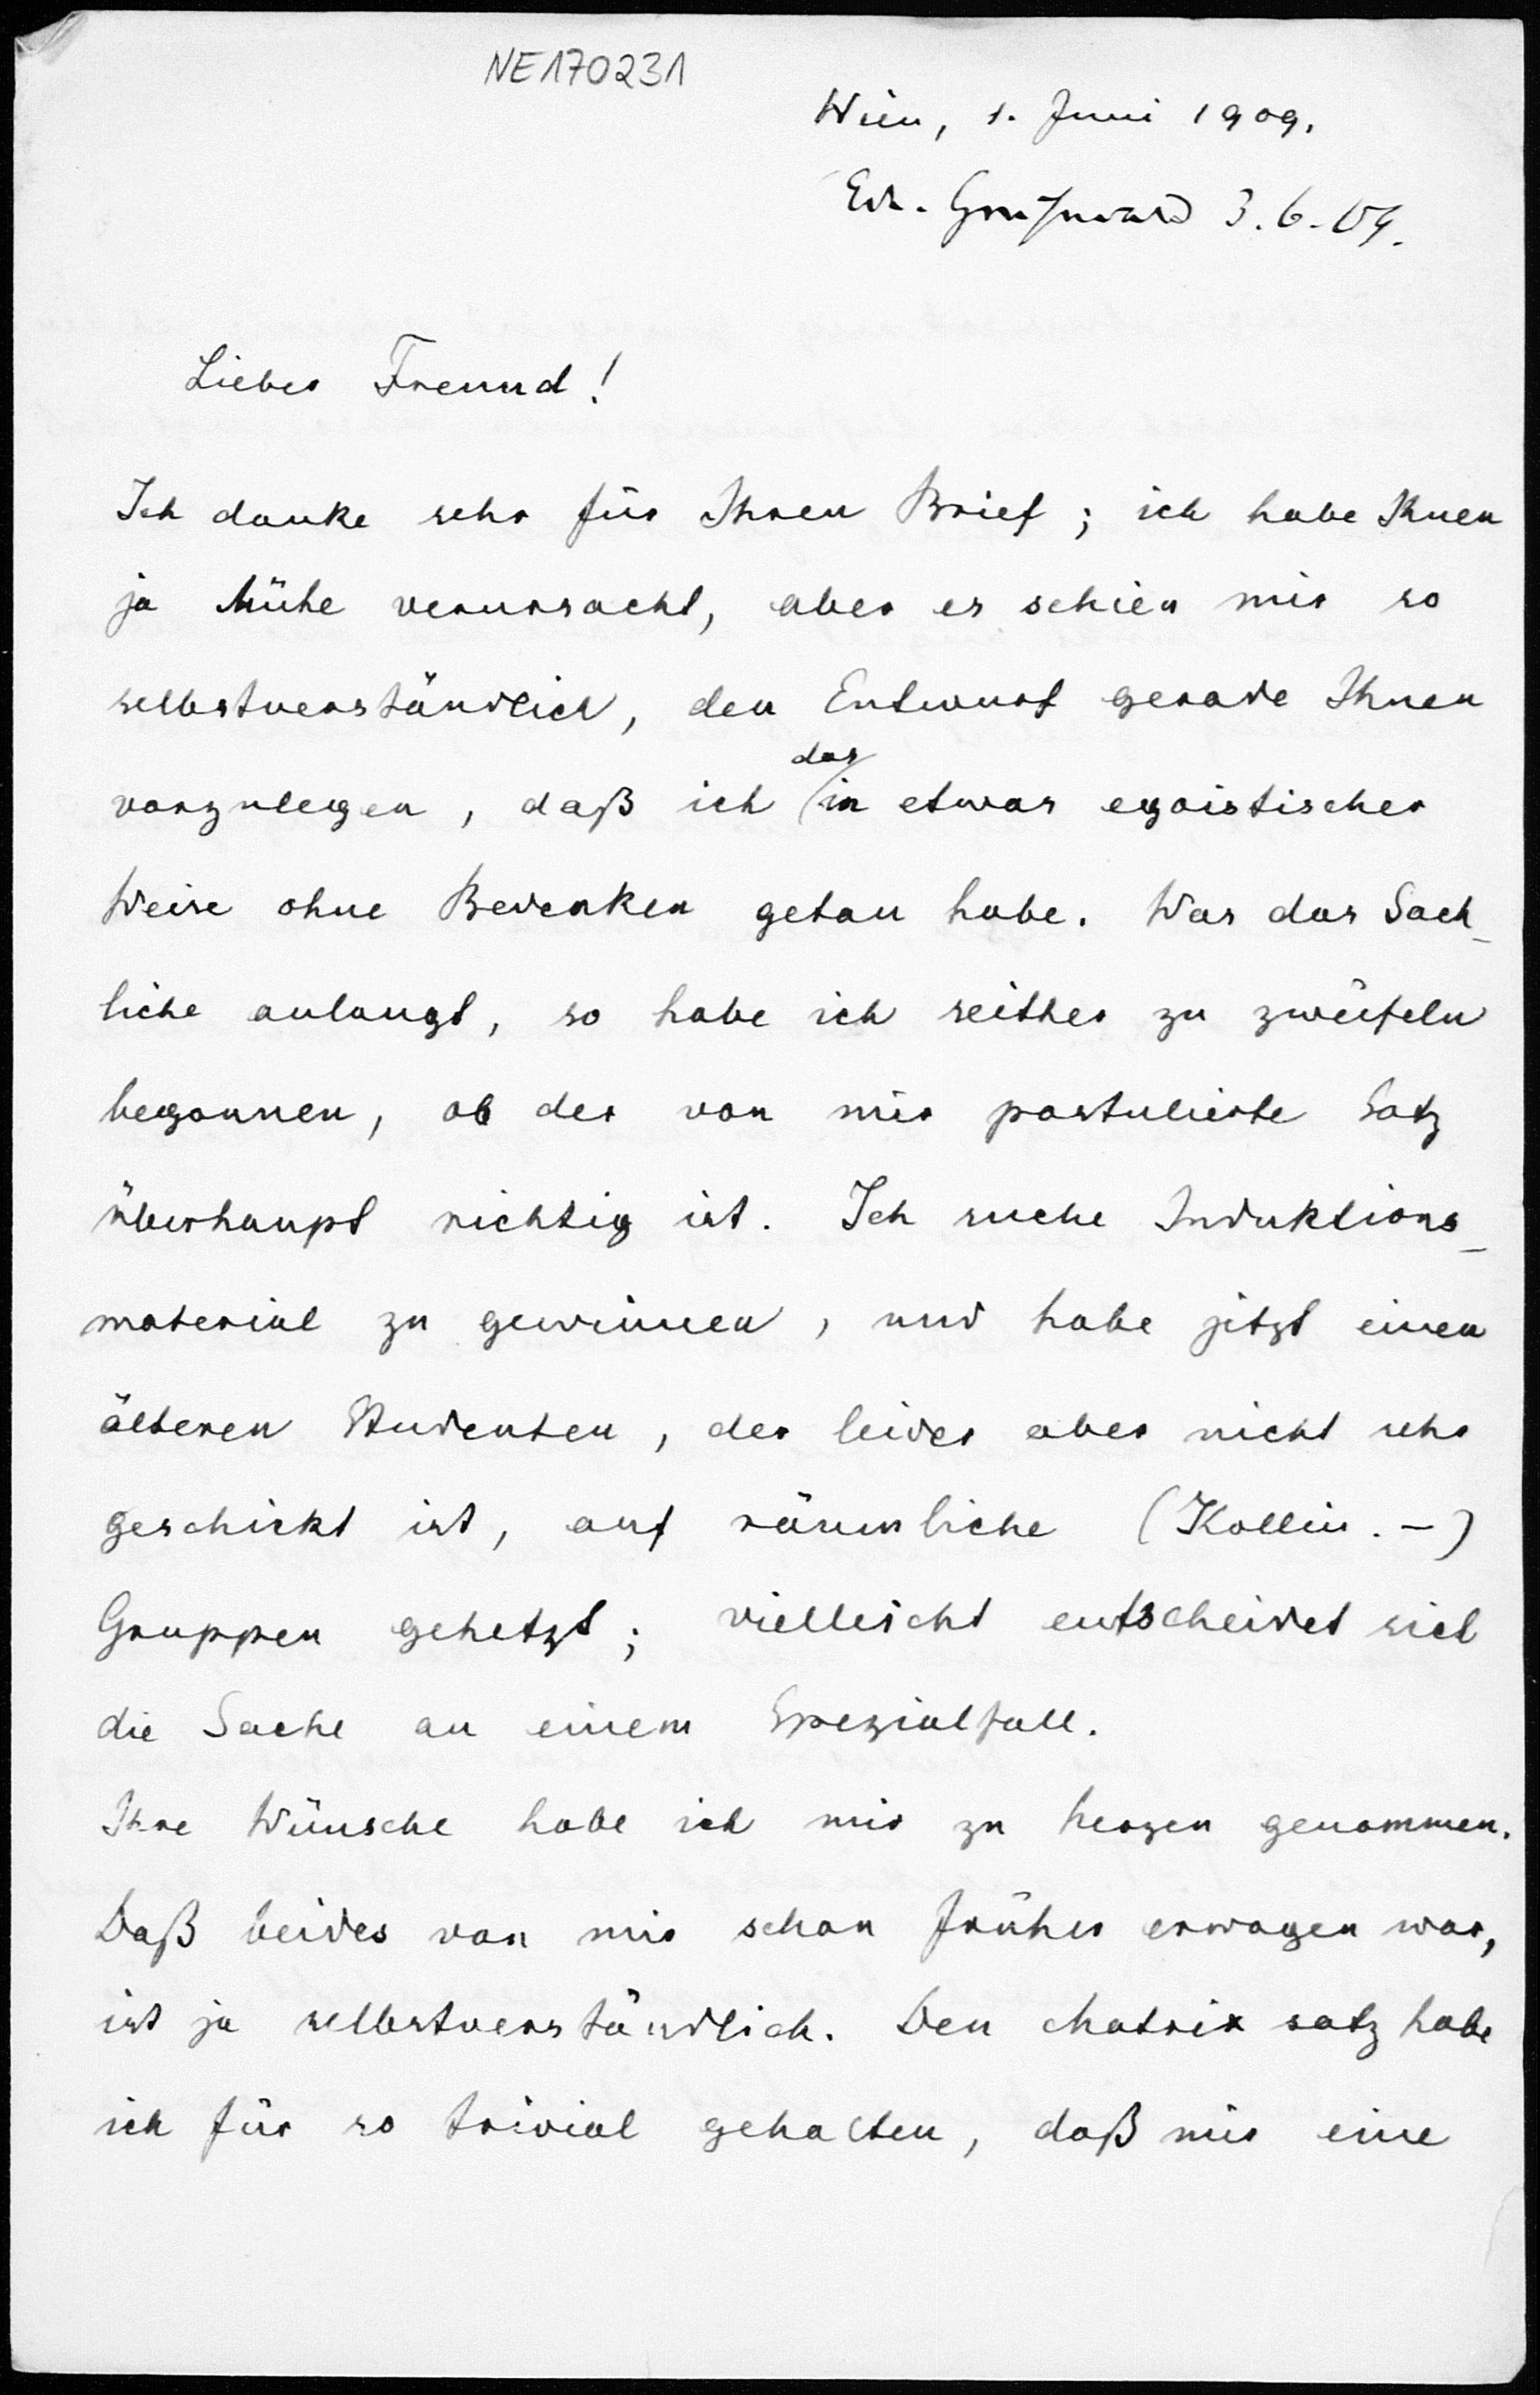 NE170231
Wien, 1. Juni 1909.
3.6.09.
Lieber Freund!
Ich danke sehr für Ihren Brief; ich habe Ihnen
ja Mühe verursacht, aber es schien mir so
selbstverständlich, den Entwurf gerade Ihnen
das
vorzulegen, daß ich in etwas egoistischer
Weise ohne Bedenken getan habe. Was das Sach-
liche anlangt, so habe ich seither zu zweifeln
begonnen, ob der von mir postulierte Satz
überhaupt richtig ist. Ich suche Induktions-
material zu gewinnen, und habe jetzt einen
älteren Studenten, der leider aber nicht sehr
geschickt ist, auf räumliche (Kollin.-)
Gruppen gehetzt; vielleicht entscheidet sich
die Sache an einem Spezialfall.
Ihre Wünsche habe ich mir zu Herzen genommen.
Daß beides von mir schon früher erwogen war,
ist ja selbstverständlich. Den Matrixsatz habe
ich für so trivial gehalten, daß mir eine